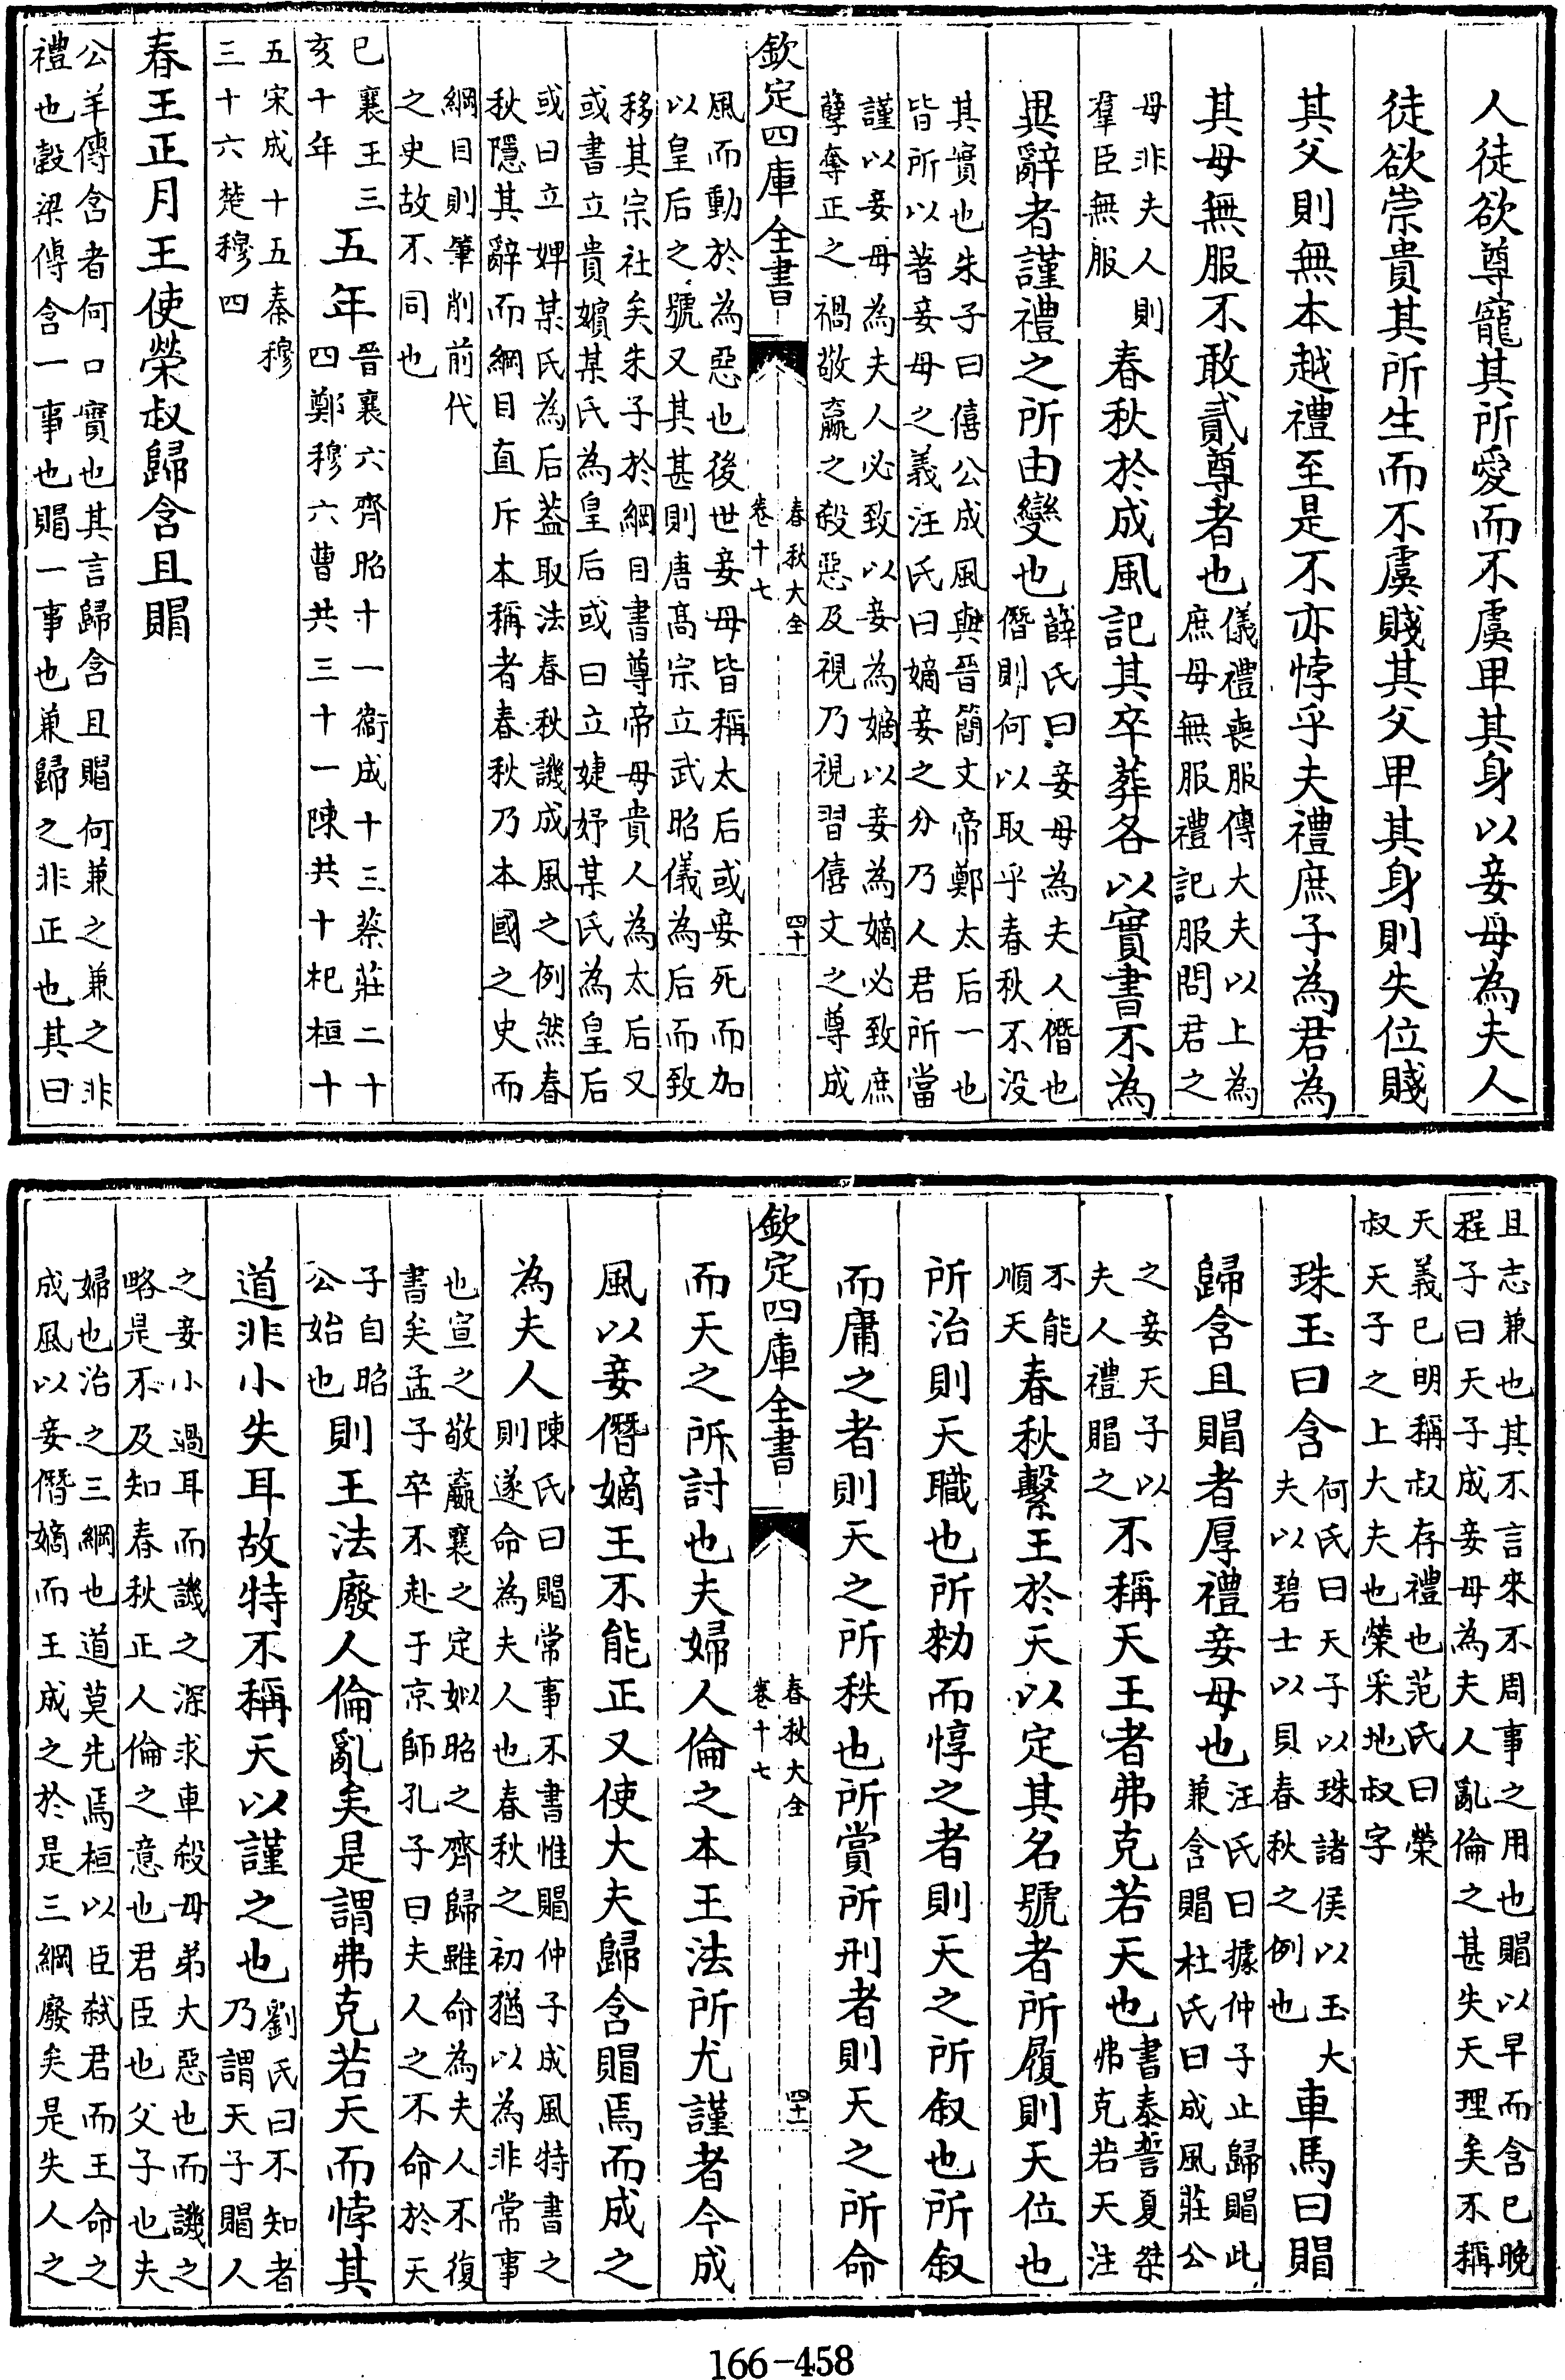 人徒欲尊寵其所愛而不虞卑其身以妾母為夫人
徒欲崇貴其所生而不虞賤其父卑其身則失位賤
其父則無本越禮至是不亦悖乎夫禮庶子為君為
其母無服不敢貳尊者也儀禮喪服傳大夫以上為
庶母無服禮記服問君之
母非夫人則
羣臣無服春秋於成風記其卒葬各以實書不為
異辭者謹禮之所由變也薛氏曰妾母為夫人僭也
僭則何以取乎春秋不没
其實也朱子曰僖公成風與晉簡文帝鄭太后一也
皆所以著妾母之義汪氏曰嫡妾之分乃人君所當
謹以妾母為夫人必致以妾為嫡以妾為嫡必致庶
孽奪正之禍敬嬴之殺惡及視乃視習僖文之尊成
欽定四庫全書
春秋大全
卷十七
四十
風而動於為惡也後世妾母皆稱太后或妾死而加
以皇后之號又其甚則唐髙宗立武昭儀為后而致
移其宗社矣朱子於綱目書尊帝母貴人為太后又
或書立貴嬪某氏為皇后或曰立婕妤某氏為皇后
或曰立婢某氏為后葢取法春秋譏成風之例然春
秋隱其辭而綱目直斥本稱者春秋乃本國之史而
綱目則筆削前代
之史故不同也
巳襄王三
亥十年五年晉襄六齊昭十一衞成十三蔡莊二十
四鄭穆六曹共三十一陳共十杞桓十
五宋成十五秦穆
三十六楚穆四
春王正月王使榮叔歸含且賵
公羊傳含者何口實也其言歸含且賵何兼之兼之非
禮也穀梁傳含一事也賵一事也兼歸之非正也其曰
且志兼也其不言來不周事之用也賵以早而含已晚
程子曰天子成妾母為夫人亂倫之甚失天理矣不稱
天義已明稱叔存禮也范氏曰榮
叔天子之上大夫也榮采地叔字
珠玉曰含何氏曰天子以珠諸侯以玉大
夫以碧士以貝春秋之例也車馬曰賵
歸含且賵者厚禮妾母也汪氏曰據仲子止歸賵此
兼含賵杜氏曰成風莊公
之妾天子以
夫人禮賵之不稱天王者弗克若天也書泰誓夏桀
弗克若天注
不能
順天春秋繫王於天以定其名號者所履則天位也
所治則天職也所勑而惇之者則天之所叙也所叙
而庸之者則天之所秩也所賞所刑者則天之所命
欽定四庫全書
春秋大全
卷十七
四十一
而天之所討也夫婦人倫之本王法所尤謹者今成
風以妾僭嫡王不能正又使大夫歸含賵焉而成之
為夫人陳氏曰賵常事不書惟賵仲子成風特書之
則遂命為夫人也春秋之初猶以為非常事
也宣之敬嬴襄之定姒昭之齊歸雖命為夫人不復
書矣孟子卒不赴于京師孔子曰夫人之不命於天
子自昭
公始也則王法廢人倫亂矣是謂弗克若天而悖其
道非小失耳故特不稱天以謹之也劉氏曰不知者
乃謂天子賵人
之妾小過耳而譏之深求車殺母弟大惡也而譏之
略是不及知春秋正人倫之意也君臣也父子也夫
婦也治之三綱也道莫先焉桓以臣弒君而王命之
成風以妾僭嫡而王成之於是三綱廢矣是失人之
166-458